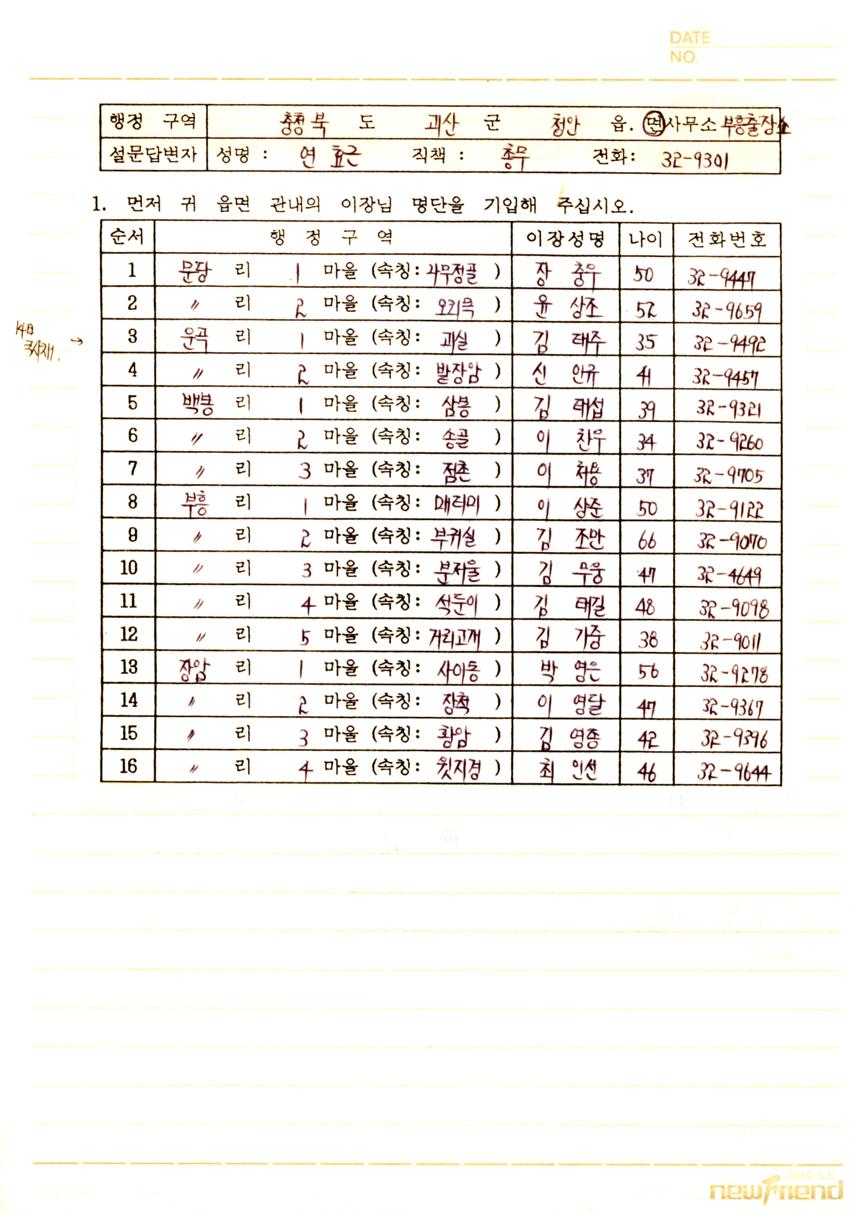 DATE
NO.
행정 구역 충청북 도 괴산 군 청안 읍. 면사무소 부흥출장소
설문답변자 성명 : 연 효근 직책 : 총무 전화: 32-9301
1. 먼저 귀 읍면 관내의 이장님 명단을 기입해 주십시오.
순서 행 정 구 역 이장성명 나이 전화번호
1 문당 리 1 마을 (속칭: 사무정골 ) 장 충우 50 32-9447
2 〃 리 2 마을 (속칭: 오리목 ) 윤 상조 52 32-9659
3 운곡 리 1 마을 (속칭: 괴실 ) 김 태주 35 32-9492
4 〃 리 2 마을 (속칭: 발장암 ) 신 안규 41 32-9457
5 백봉 리 1 마을 (속칭: 삼봉 ) 김 태섭 39 32-9321
6 〃 리 2 마을 (속칭: 송골 ) 이 찬우 34 32-9260
7 〃 리 3 마을 (속칭: 점촌 ) 이 37 32-9705
8 부흥 리 1 마을 (속칭: 매더미 ) 이 상준 50 32-9122
9 〃 리 2 마을 (속칭: 부귀실 ) 김 조만 66 32-9070
10 〃 리 3 마을 (속칭: 분저울 ) 김 무웅 47 32-4649
11 〃 리 4 마을 (속칭: 석둔이 ) 김 태길 48 32-9098
12 〃 리 5 마을 (속칭: 거리고개 ) 김 가중 38 32-9011
13 장암 리 1 마을 (속칭: 사이동 ) 박 영은 56 32-9278
14 〃 리 2 마을 (속칭: 장척 ) 이 영달 47 32-9367
15 〃 리 3 마을 (속칭: 황암 ) 김 영종 42 32-9396
16 〃 리 4 마을 (속칭: 윗지경 ) 최 인선 46 32-9644
newFriend